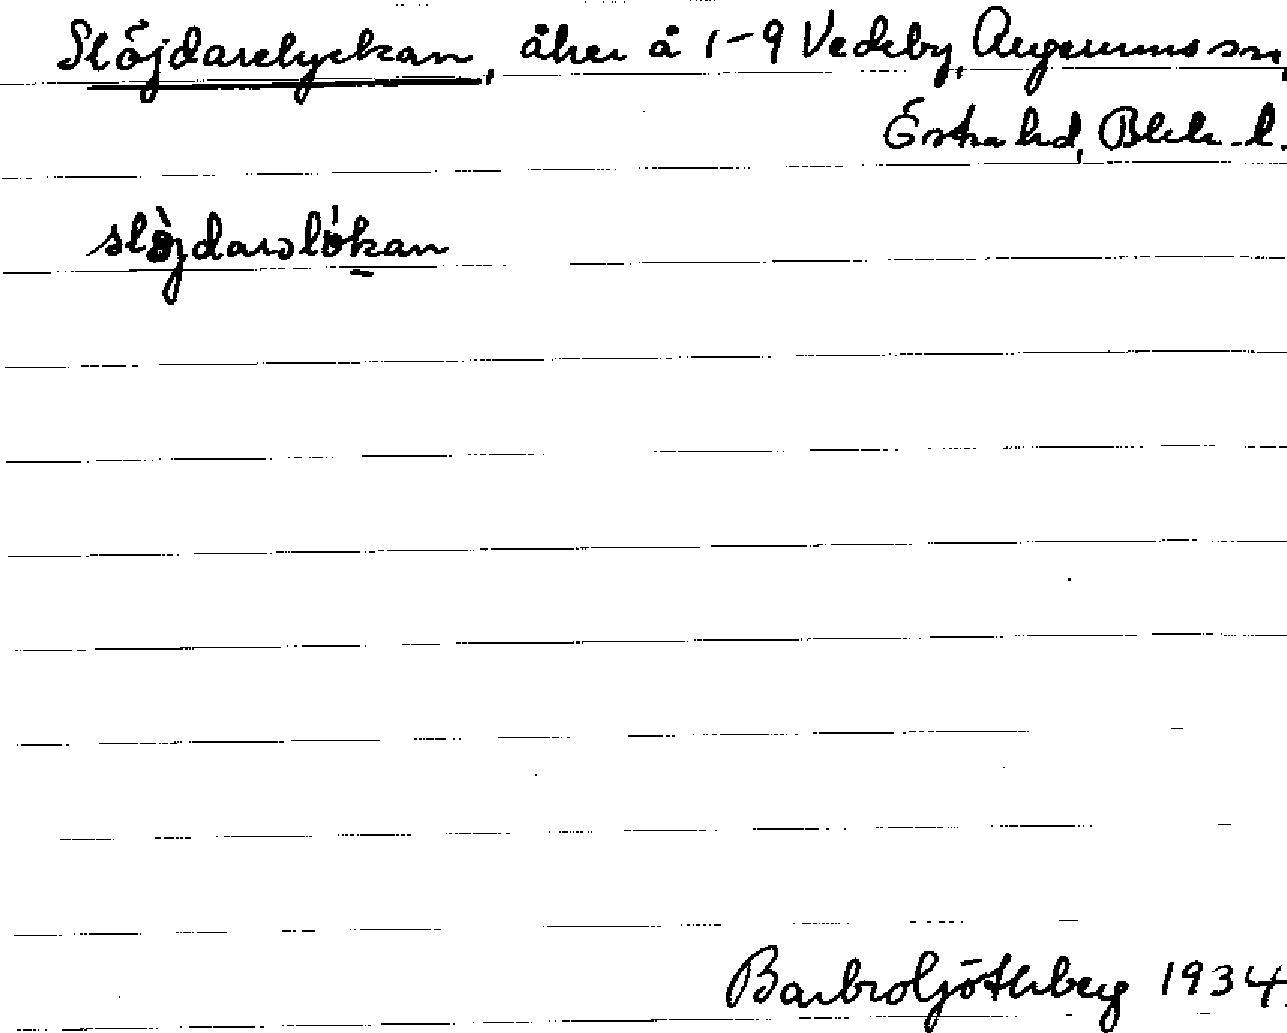 Slöjdarelyckan, åker å 1-9 Vedeby, Augerums sn,
Östra hd, Blek. l.
slöjdarəlökan
Barbro Götherberg 1934.